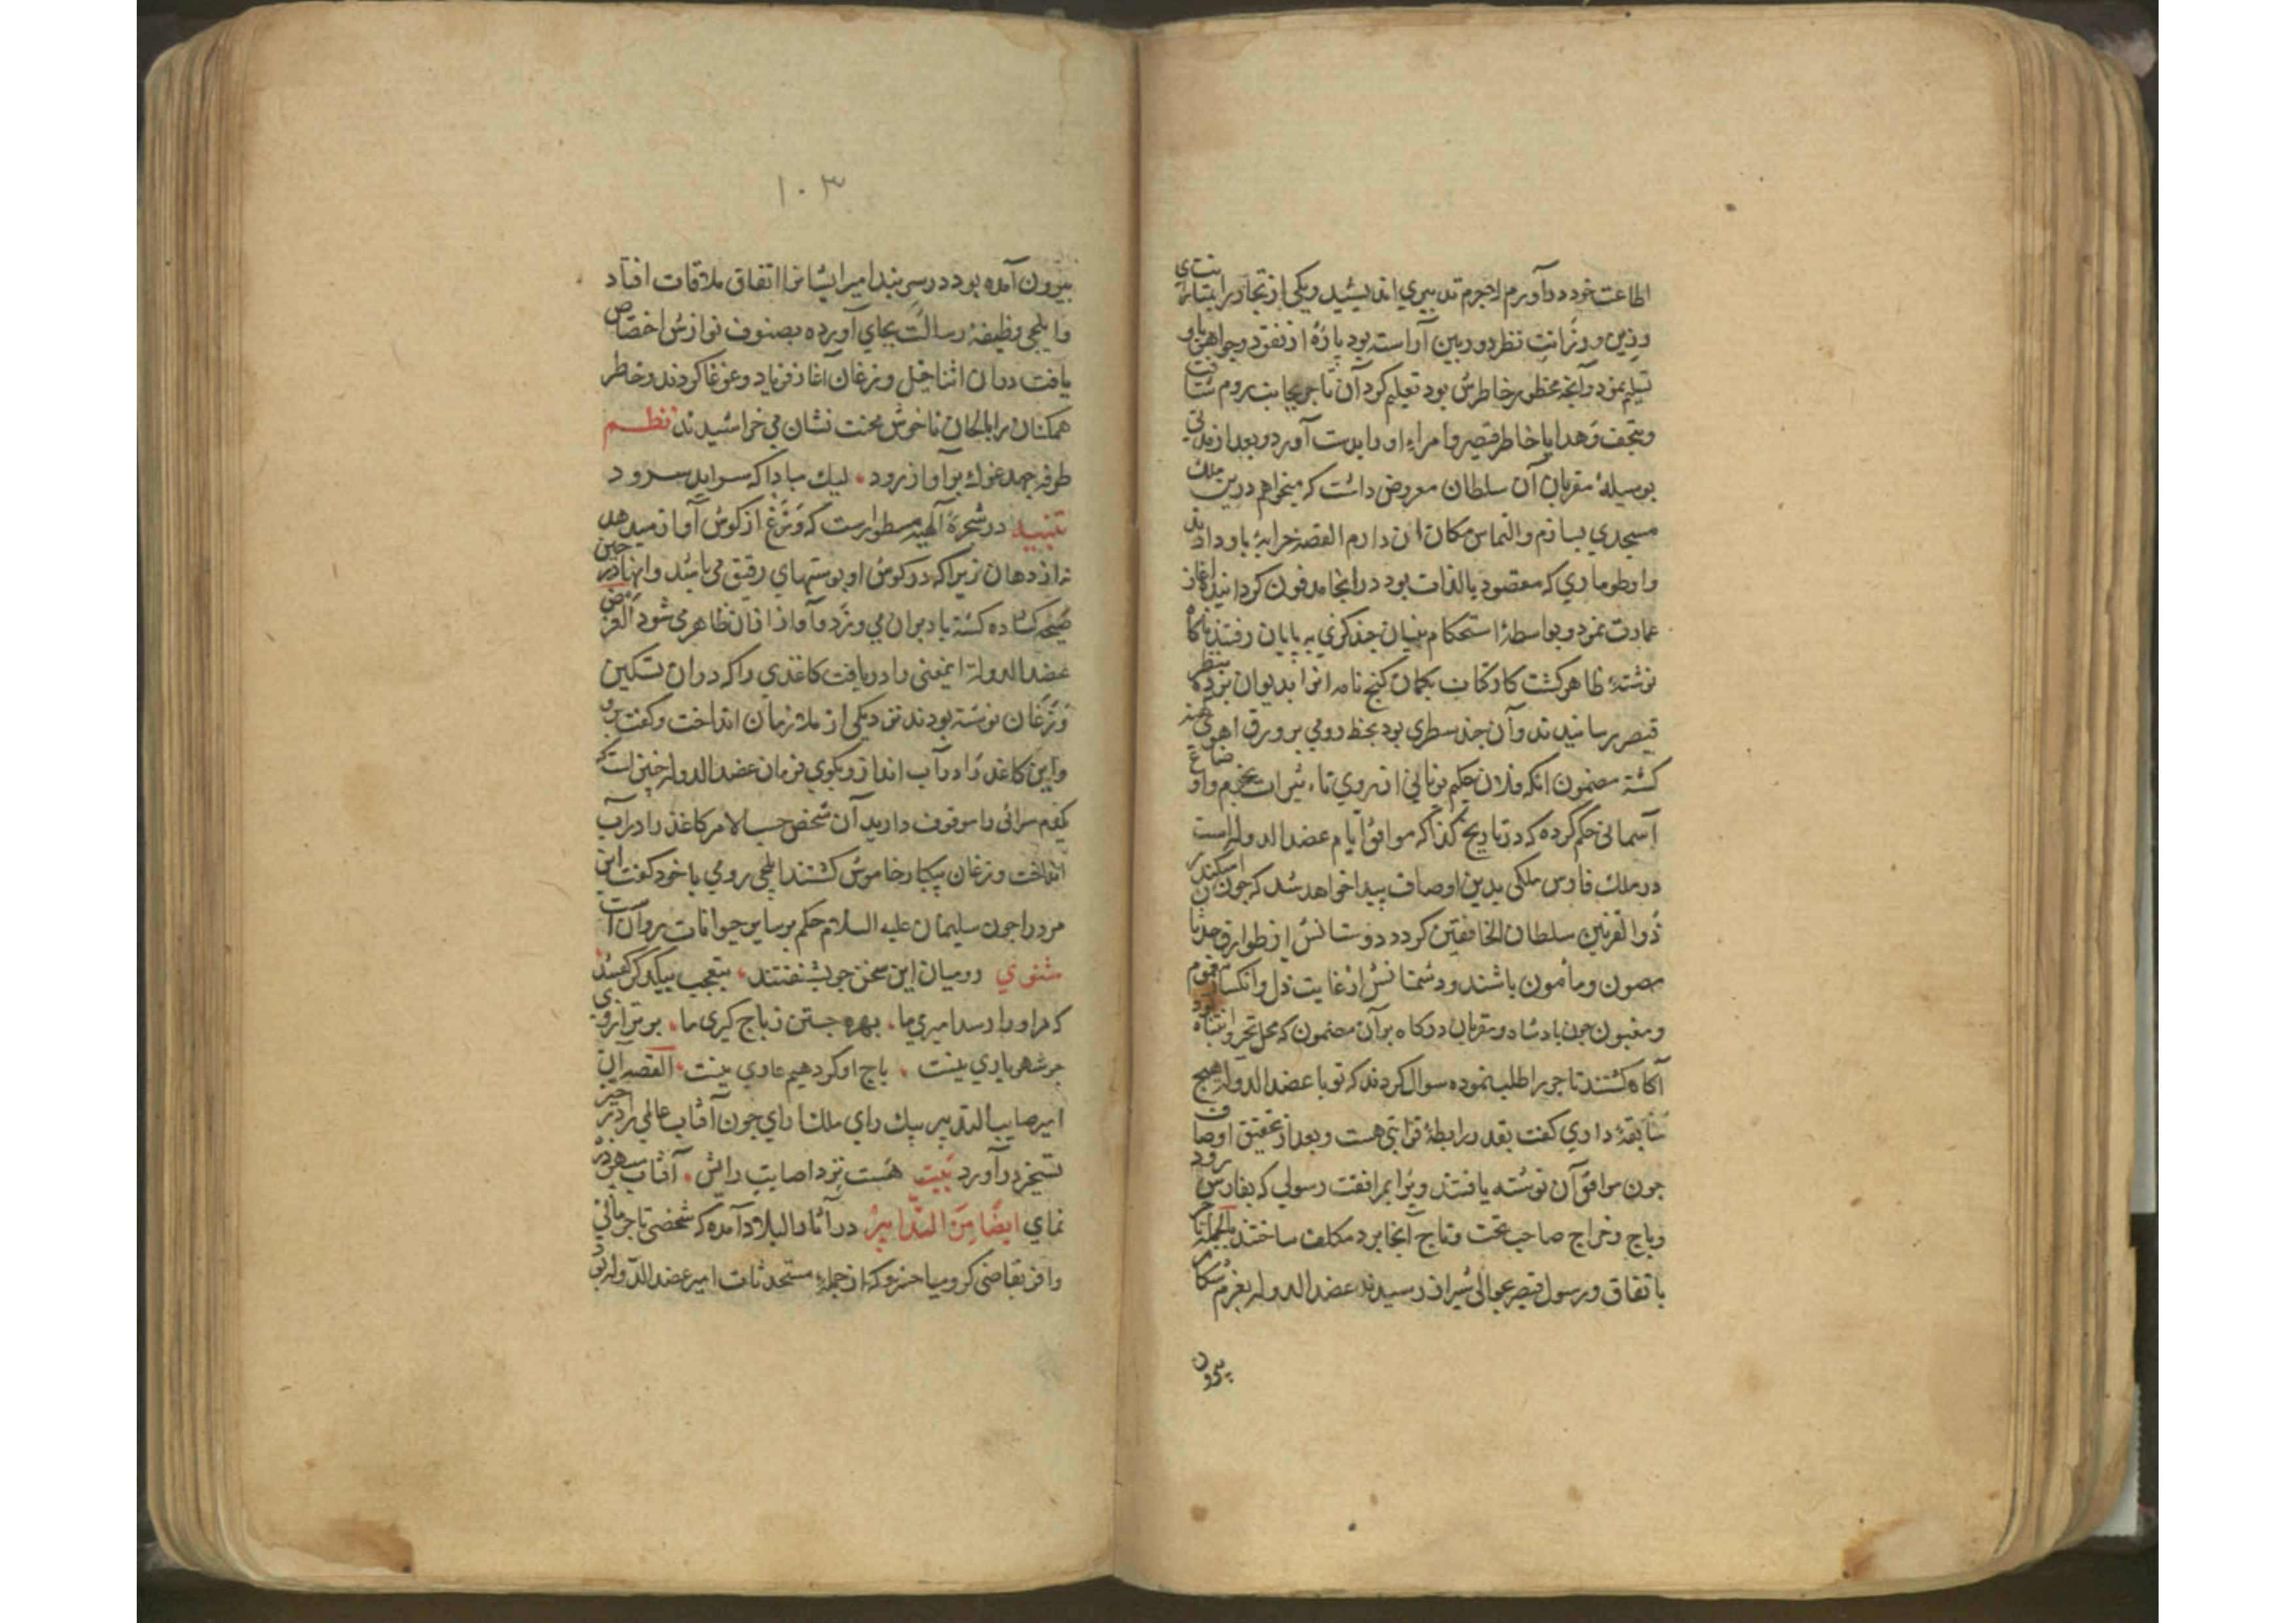 اطاعت خود در آورم لاجرم تدبیری اندیشید و یکی از تجار را بمتانت رای
و رزانت نظر دوربین آراسته بود پارهٔ از نقود و جواهر باو
تسلیم نمود و آنچه محظور خاطرش بود تعلیم کرد آن تاجر بجانب روم شتافت
و بتحف و هدایا خاطر قیصر و امراء او را بدست آورد و بعد از مدتی
بوسیلهٔ مقربان آن سلطان معروض داشت که میخواهم درین ملک
مسجدی بسازم و التماس مکان ان دارم القصه خرابهٔ باو دادند
و او طوماری که مقصود بالذات بود در انجا مدفون کردانیده اغاز
عمارت نمود و بواسطهٔ استحکام بنیان چند کزی به پایان رفتند ناکاه
نوشته ظاهر کشت کارکنان بکمان کنج نامه انرا بدیوان بنظر
قیصر رسانیدند و آن چند سطری بود بخط رومی بر ورق اهوی
کشته مضمون انکه فلان حکیم یونانی از روی تاثیرات نجوم و اوضاع
آسمانی حکم کرده که در تاریخ کذا که موافق ایام عضد الدوله است
در ملک فارس ملکی بدین اوصاف پیدا خواهد شد که چون اسکندر
ذوالقرنین سلطان الخافقین کردد دوستانش از طوارق حدثان
مصون و مأمون باشند و دشمنانش از غایت ذل و انکسار
و مغبون چون بادشاه و مقربان درکاه بر آن مضمون که محل تحیر و انتباه
آکاه کشتند تاجر را طلب نموده سوال کردند که تو با عضد الدوله هیچ
سابقهٔ داری کفت بقدر رابطهٔ قرابتی هست و بعد از تحقیق اوصاف
چون موافق آن نوشته یافتند ویرا بمرافقت رسولی که بفارس رود
و باج و خراج صاحب تخت و تاج آنجا برد مکلف ساختند بالجمله تاجر
باتفاق رسول قیصر بحوالی شیراز رسیدند عضد الدوله بعزم شکار
بیرون
۱۰۳
بیرون آمده بود در سر بند امیر ایشانرا اتفاق ملاقات افتاد
و ایلچی وظیفهٔ رسالت بجای آورده بصنوف نوازش اختصاص
یافت دران اثنا خیل وزغان آغاز فریاد و غوغا کردند و خاطر
همکنان را بالحان ناخوش محنت نشان می خراشیدند نظم
طرفه جهد غوک بر آواز رود لیک مبادا که سراید سرود
تنبیه در شجرهٔ الهیه مسطورست که وزغ از کوش آواز میدهد
نه از دهان زیرا که در کوش او پوستهای رقیق می باشد و انها در حین
صیحه کشاده کشته باد بران می وزد و آواز ازان ظاهر می شود الغرض
عضد الدوله اینمعنی را دریافت کاغذی را که در ان تسکین
وزغان نوشته بودند نزدیکی از ملازمان انداخت و کفت برو
و این کاغذ را در آب انداز و بکوی فرمان عضد الدوله چنین است که
کفم سرائی را موقوف دارید آن شخص حسب الامر کاغذ را در آب
انداخت وزغان بیکبار خاموش کشتند ایلچی رومی با خود کفت این
مرد را چون سلیمان علیه السلام حکم بر سایر حیوانات روان است
مثنوی رومیان این سخن چو بشنفتند بتعجب بیکدکر کفتند
که مر او را رسد امیری ما بهره جستن ز باج کیری ما برتر از وی
چو شهریاری نیست باج او کر دهیم عاری نیست القصه آن
امیر صایب التدبیر بیک رای ملک ارای چون آفتاب عالمی را در حیز
تسخیر در آورد بیت هست نزد اصابت رایش آفتاب سپهر
نمای ایضا من التدابیر در آثار البلاد آمده که شخصی تاجر مالی
وافر بقاضی